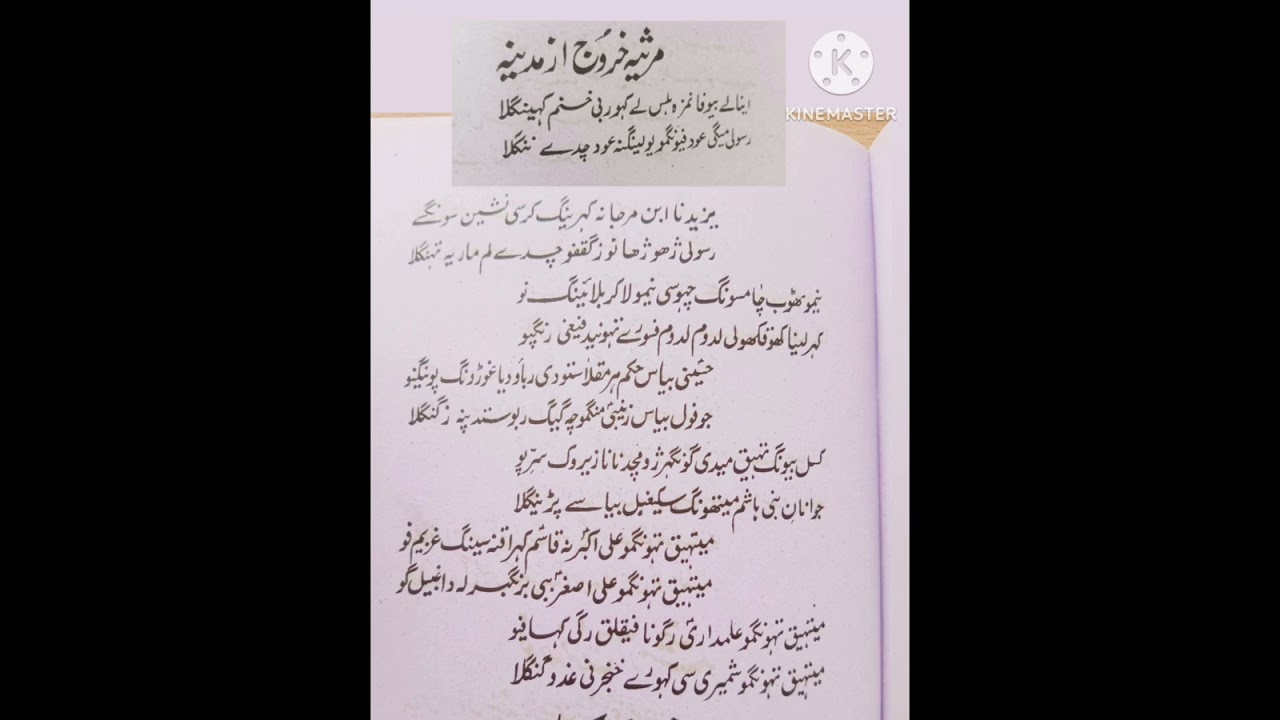 مرثیہ خروج از مدینہ
اینالے بیوفا نمزہ بلس لے کہور بی ختم کہینگلا
رسولی میگی عود فیونگمو یولینگنہ عود چدے ننگلا
یزید نا ابن مرجانہ کہرینگ کرسی نشین سونگسے
رسولی ژھوژھا نور گقفو چدے لم ماریہ تہنگلا
نیمو تھوب چا مسونگ چہوسی نیمولا کربلا ئینگ نو
کہر لینا کھو فکھولی لدوم لدوم فسورے نہونید فیغنی رنگپو
حسینی بیاس حکم ہر مقلا ستودی رباو دیا غوژدنگ پونیگنو
جو فول بیاس زینبی منگموچہ گیگ ربوستدپنہ ز گنگلا
کسل بیونگ تہیق میدی گونگہرژو مچد نا نازیروک سترپو
جوانان بنی ہاشم مینتھونگ سکیغبل بیا سے پڑینگلا
میتہیق تہونگمو علی اکبر نہ قاسم کہرا قنہ سینگ غریم فو
میتہیق تہونگمو علی اصغر ببی بزنگبہ لہ دا غبیل گو
میتہیق تہونگمو علمداری رگونا فیقلق رگی کہا فیو
میتہیق تہونگمو شمیری سی کہورے خنجر نی غدو گنگلا
KINEMASTER